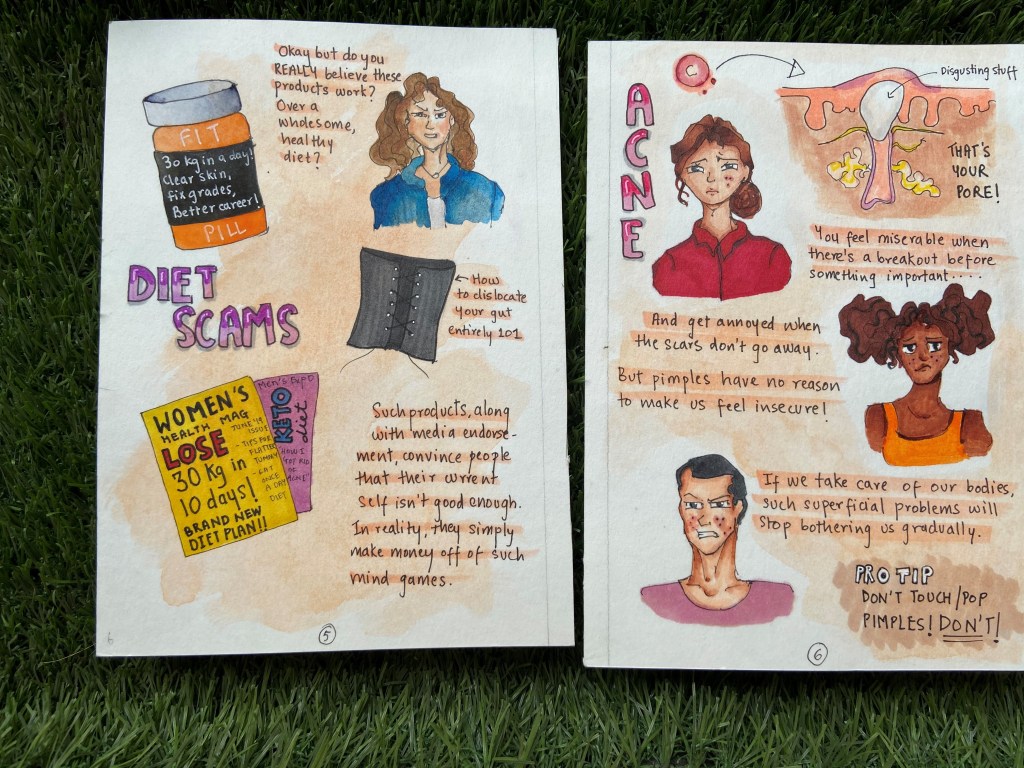 Okay but do you
REALLY believe these
products work?
Over a
wholesome,
healthy
diet?
FIT
30 kg in a day!
Clear skin,
fix grades,
Better career!
PILL
DIET
SCAMS
← How
to dislocate
your gut
entirely 101
WOMEN'S
HEALTH MAG
LOSE
30 kg in
10 days!
BRAND NEW
DIET PLAN!!
JUNE '19
ISSUE
- TIPS FOR
FLATTER
TUMMY
- EAT
ONCE
A DAY
DIET
Men's Expo
KETO
diet
HOW I
GOT RID
OF
Such products, along
with media endorse-
ment, convince people
that their current
self isn't good enough.
In reality, they simply
make money off of such
mind games.
6
5
ACNE
Disgusting stuff
THAT'S
YOUR
PORE!
You feel miserable when
there's a breakout before
something important.....
And get annoyed when
the scars don't go away.
But pimples have no reason
to make us feel insecure!
If we take care of our bodies,
such superficial problems will
stop bothering us gradually.
PRO TIP
DON'T TOUCH/POP
PIMPLES! DON'T!
6